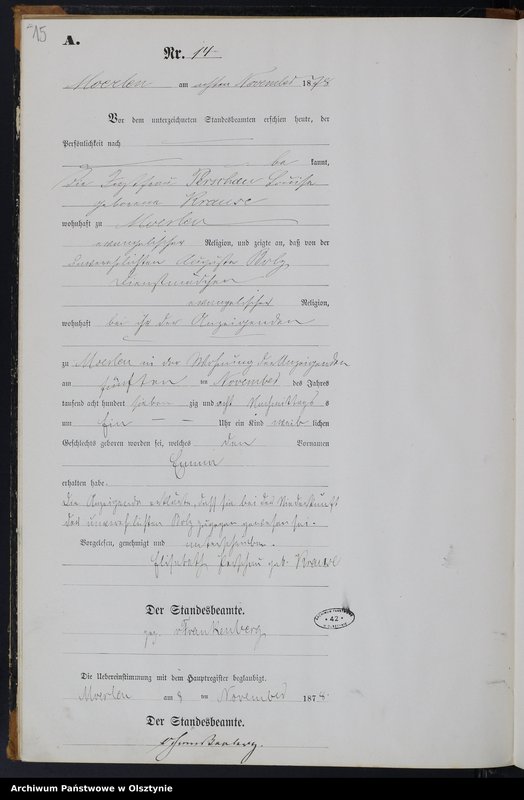 15
A.
Nr. 14
Moerlen am achten November 1878
Vor dem unterzeichneten Standesbeamten erschien heute, der
Persönlichkeit nach
be kannt,
die Louise
geborene Krause
wohnhaft zu Moerlen
evangelischer Religion, und zeigte an, daß von der
unverehelichten Auguste Bolz
Dienstmädchen
evangelischer Religion,
wohnhaft bei ihr der Anzeigenden
zu Moerlen in der Wohnung der Anzeigenden
am fünften ten November des Jahres
tausend acht hundert sieben zig und acht Nachmittags s
um Ein Uhr ein Kind weib lichen
Geschlechts geboren worden sei, welches den Vornamen
Emma
erhalten habe.
Die Anzeigende erklärte, dass sie bei der Niederkunft
der unverehelichten Bolz zugegen gewesen sei.
Vorgelesen, genehmigt und unterschrieben.
Elisabeth geb. Krause
Der Standesbeamte.
gez. vFrankenberg
42
Die Uebereinstimmung mit dem Hauptregister beglaubigt.
Moerlen am 8 ten November 1878
Der Standesbeamte.
vFrankenberg.
Archiwum Państwowe w Olsztynie